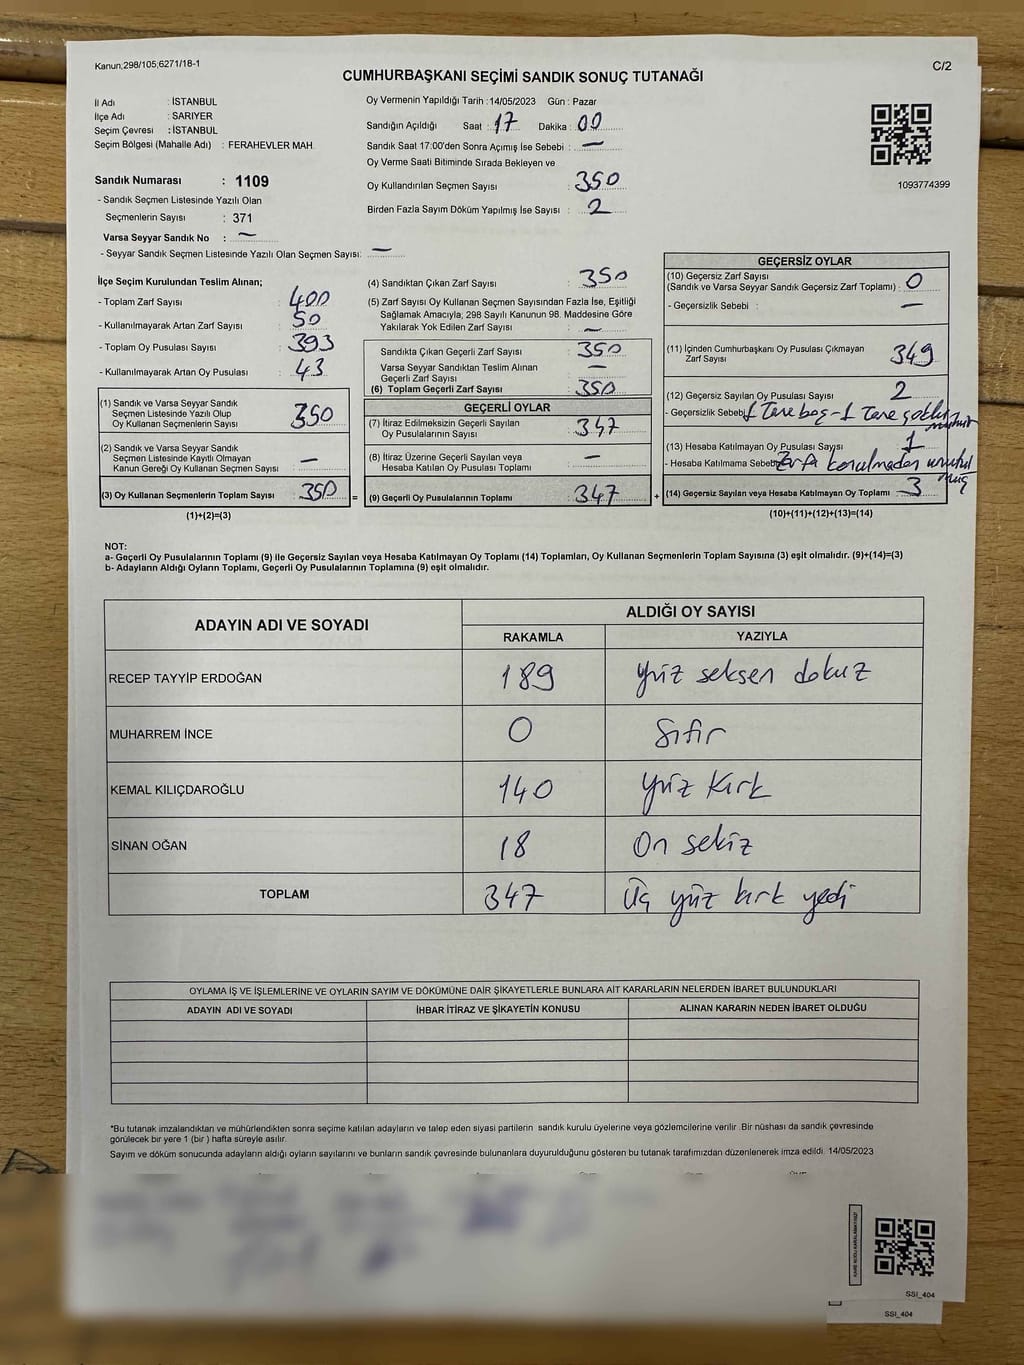 Kanun;298/105;6271/18-1
C/2
CUMHURBAŞKANI SEÇİMİ SANDIK SONUÇ TUTANAĞI
İl Adı : İSTANBUL
İlçe Adı : SARIYER
Seçim Çevresi : İSTANBUL
Seçim Bölgesi (Mahalle Adı) : FERAHEVLER MAH.
Oy Vermenin Yapıldığı Tarih : 14/05/2023 Gün : Pazar
Sandığın Açıldığı Saat : 17 Dakika : 00
Sandık Saat 17:00'den Sonra Açımış İse Sebebi : —
Oy Verme Saati Bitiminde Sırada Bekleyen ve
Oy Kullandırılan Seçmen Sayısı : 350
Birden Fazla Sayım Döküm Yapılmış İse Sayısı : 2
1093774399
Sandık Numarası : 1109
- Sandık Seçmen Listesinde Yazılı Olan
Seçmenlerin Sayısı : 371
Varsa Seyyar Sandık No : —
- Seyyar Sandık Seçmen Listesinde Yazılı Olan Seçmen Sayısı: —
İlçe Seçim Kurulundan Teslim Alınan;
- Toplam Zarf Sayısı : 400
- Kullanılmayarak Artan Zarf Sayısı : 50
- Toplam Oy Pusulası Sayısı : 393
- Kullanılmayarak Artan Oy Pusulası : 43
(1) Sandık ve Varsa Seyyar Sandık
Seçmen Listesinde Yazılı Olup
Oy Kullanan Seçmenlerin Sayısı : 350
(2) Sandık ve Varsa Seyyar Sandık
Seçmen Listesinde Kayıtlı Olmayan
Kanun Gereği Oy Kullanan Seçmen Sayısı : —
(3) Oy Kullanan Seçmenlerin Toplam Sayısı : 350 =
(1)+(2)=(3)
(4) Sandıktan Çıkan Zarf Sayısı : 350
(5) Zarf Sayısı Oy Kullanan Seçmen Sayısından Fazla İse, Eşitliği
Sağlamak Amacıyla; 298 Sayılı Kanunun 98. Maddesine Göre
Yakılarak Yok Edilen Zarf Sayısı : —
Sandıkta Çıkan Geçerli Zarf Sayısı : 350
Varsa Seyyar Sandıktan Teslim Alınan : —
Geçerli Zarf Sayısı
(6) Toplam Geçerli Zarf Sayısı : 350
GEÇERLİ OYLAR
(7) İtiraz Edilmeksizin Geçerli Sayılan
Oy Pusulalarının Sayısı : 347
(8) İtiraz Üzerine Geçerli Sayılan veya
Hesaba Katılan Oy Pusulası Toplamı : —
(9) Geçerli Oy Pusulalarının Toplamı : 347 +
GEÇERSİZ OYLAR
(10) Geçersiz Zarf Sayısı
(Sandık ve Varsa Seyyar Sandık Geçersiz Zarf Toplamı) : 0
- Geçersizlik Sebebi : —
(11) İçinden Cumhurbaşkanı Oy Pusulası Çıkmayan
Zarf Sayısı : 349
(12) Geçersiz Sayılan Oy Pusulası Sayısı : 2
- Geçersizlik Sebebi 1 Tane boş-1 Tane
(13) Hesaba Katılmayan Oy Pusulası Sayısı : 1
- Hesaba Katılmama Sebebi Zarfa konulmadan unutul
muş
(14) Geçersiz Sayılan veya Hesaba Katılmayan Oy Toplamı : 3
(10)+(11)+(12)+(13)=(14)
NOT:
a- Geçerli Oy Pusulalarının Toplamı (9) ile Geçersiz Sayılan veya Hesaba Katılmayan Oy Toplamı (14) Toplamları, Oy Kullanan Seçmenlerin Toplam Sayısına (3) eşit olmalıdır. (9)+(14)=(3)
b- Adayların Aldığı Oyların Toplamı, Geçerli Oy Pusulalarının Toplamına (9) eşit olmalıdır.
ADAYIN ADI VE SOYADI
ALDIĞI OY SAYISI
RAKAMLA YAZIYLA
RECEP TAYYİP ERDOĞAN 189 yüz seksen dokuz
MUHARREM İNCE 0 Sıfır
KEMAL KILIÇDAROĞLU 140 yüz kırk
SİNAN OĞAN 18 On sekiz
TOPLAM 347 Üç yüz kırk yedi
OYLAMA İŞ VE İŞLEMLERİNE VE OYLARIN SAYIM VE DÖKÜMÜNE DAİR ŞİKAYETLERLE BUNLARA AİT KARARLARIN NELERDEN İBARET BULUNDUKLARI
ADAYIN ADI VE SOYADI İHBAR İTİRAZ VE ŞİKAYETİN KONUSU ALINAN KARARIN NEDEN İBARET OLDUĞU
*Bu tutanak imzalandıktan ve mühürlendikten sonra seçime katılan adayların ve talep eden siyasi partilerin sandık kurulu üyelerine veya gözlemcilerine verilir. Bir nüshası da sandık çevresinde
görülecek bir yere 1 (bir ) hafta süreyle asılır.
Sayım ve döküm sonucunda adayların aldığı oyların sayılarını ve bunların sandık çevresinde bulunanlara duyurulduğunu gösteren bu tutanak tarafımızdan düzenlenerek imza edildi. 14/05/2023
SSİ_404
SSİ_404